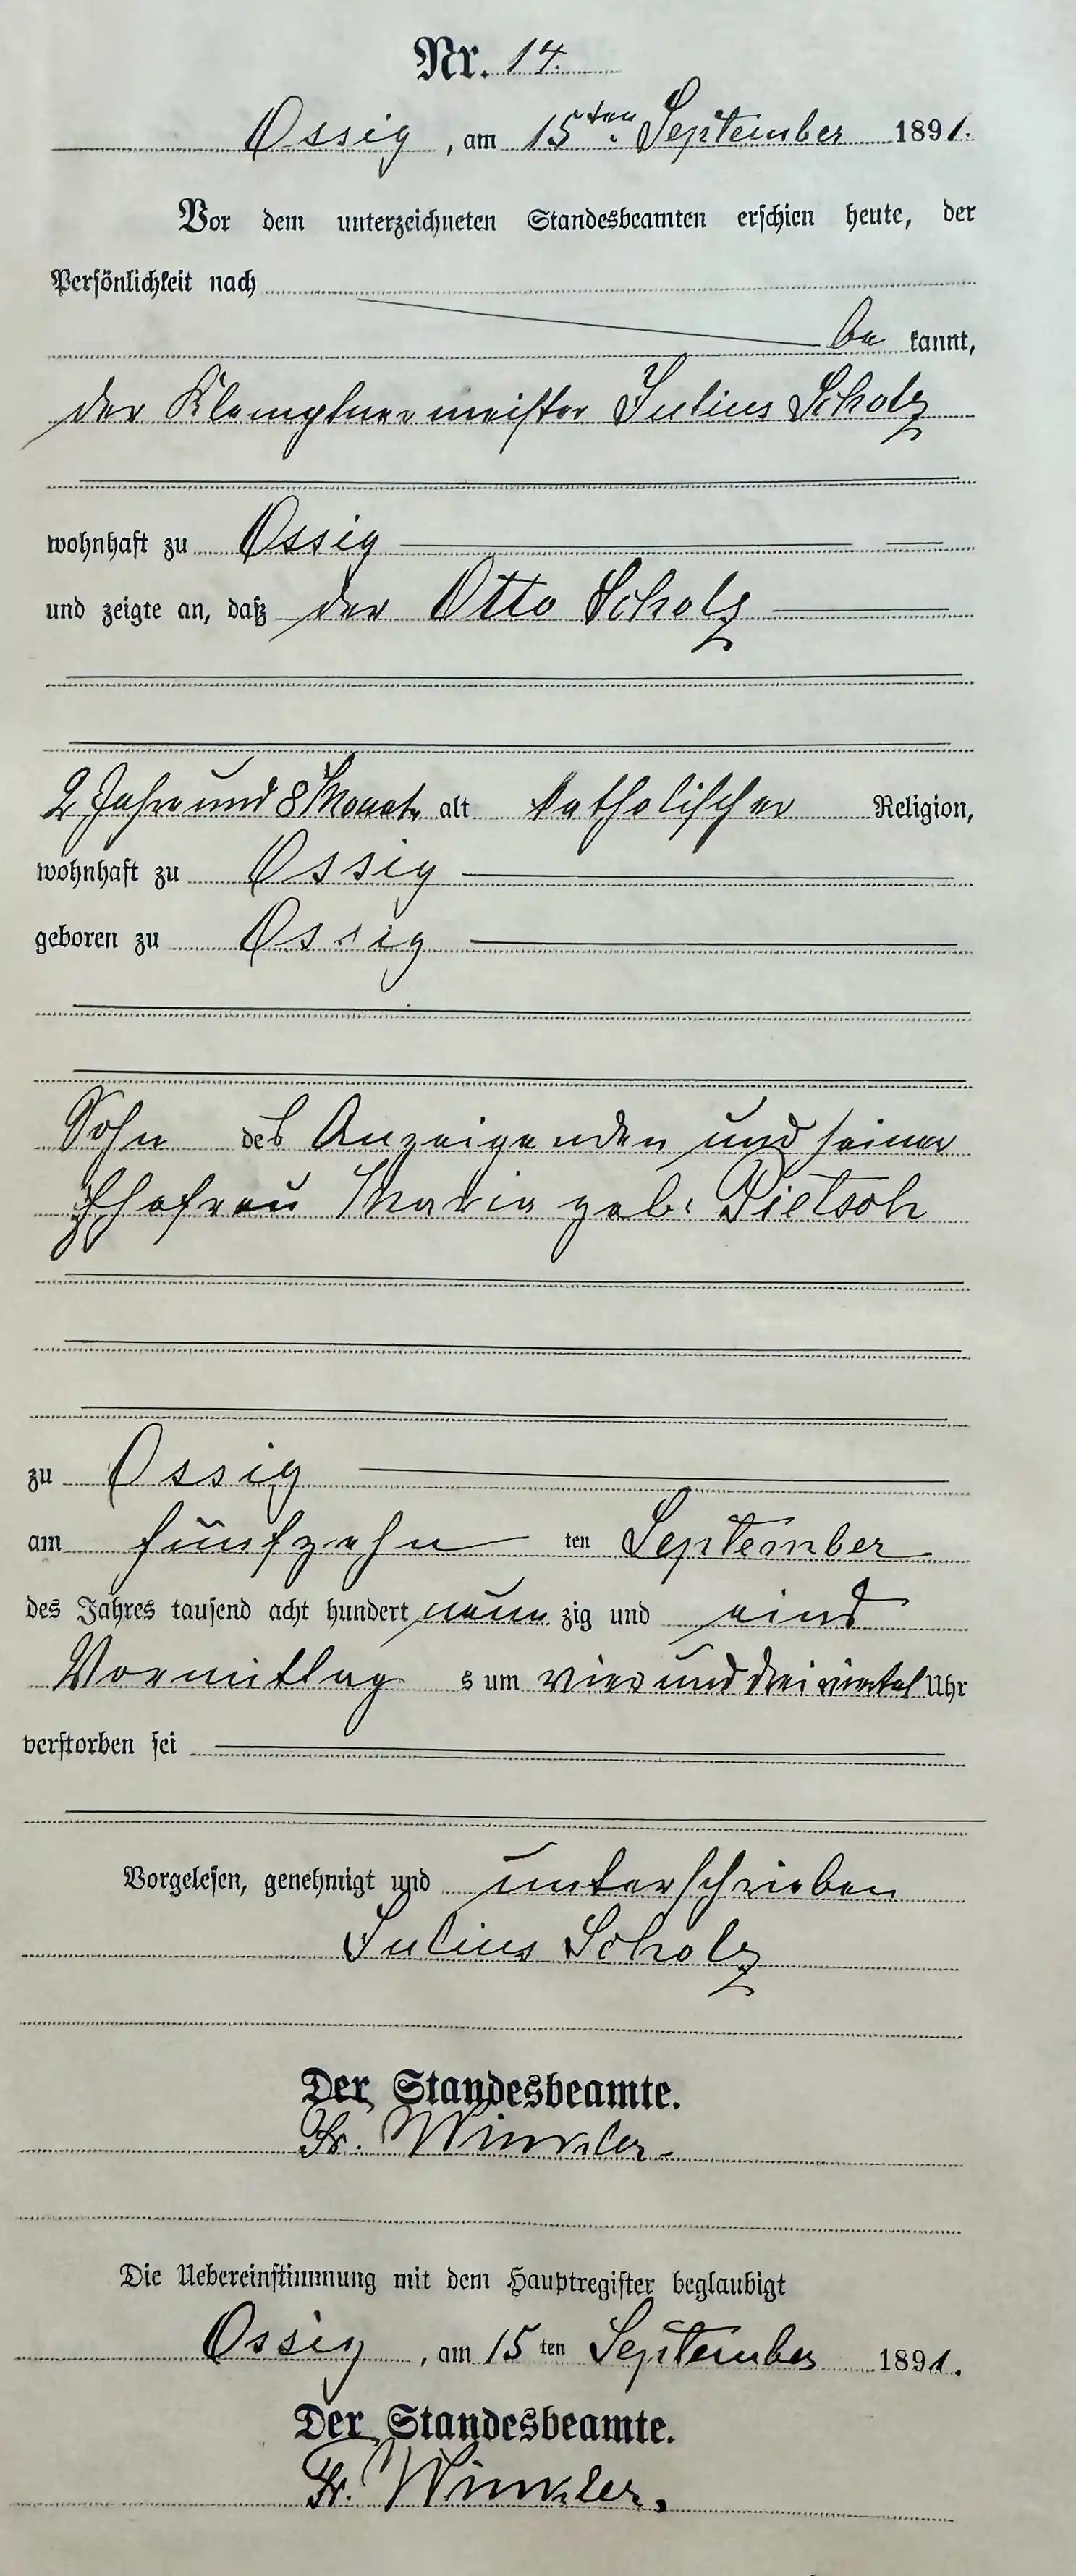 Nr. 14.
Ossig, am 15ten September 1891.
Vor dem unterzeichneten Standesbeamten erschien heute, der
Persönlichkeit nach
be kannt,
der Klemptnermeister Julius Scholz
wohnhaft zu Ossig
und zeigte an, daß der Otto Scholz
2 Jahre und 8 Monate alt katholischer Religion,
wohnhaft zu Ossig
geboren zu Ossig
Sohn des Anzeigenden und seiner
Ehefrau Maria geb. Pietsch
zu Ossig
am fünfzehn ten September
des Jahres tausend acht hundert neun zig und eins
Vormittag s um vier und dreiviertel Uhr
verstorben sei
Vorgelesen, genehmigt und unterschrieben
Julius Scholz
Der Standesbeamte.
Fr. Winkler.
Die Uebereinstimmung mit dem Hauptregister beglaubigt
Ossig, am 15 ten September 1891.
Der Standesbeamte.
Fr. Winkler.